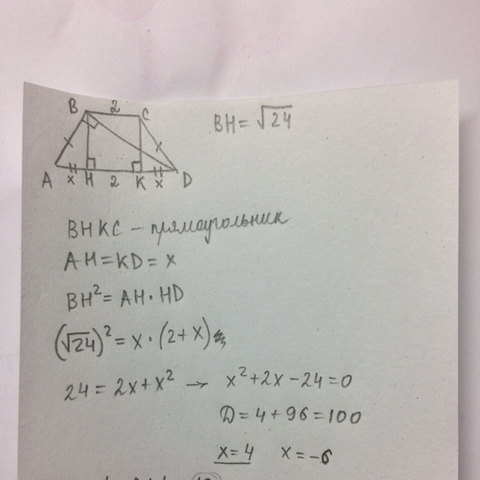 B 2 C
BH = √24
A x H 2 K x D
BHKC – прямоугольник
AH = KD = x
BH² = AH · HD
(√24)² = x · (2 + x)
24 = 2x + x² → x² + 2x − 24 = 0
D = 4 + 96 = 100
x = 4 x = −6